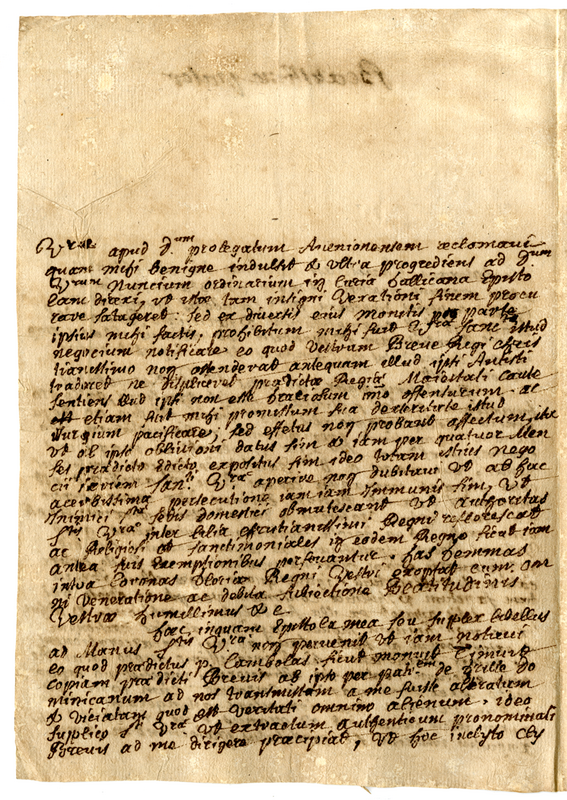 Vrae apud D.um prolegatum Avenionensem reclomavi
quam mihi benigne indulsit & ultra progrediens ad D.um
Vrum Nuncium ordinarium in Curia Gallicana Episto
lam direxi, ut isto tam insigni Vexationi finem procu
rare satageret: sed ex diversis eius monitis per parte
ipsius mihi factis, prohibitum mihi fuit Vra sane istud
negocium notificare eo quod Vestrum Breve Regi Chris
tianissimo non ostenderat antequam illud ipsi Antisti
traderet ne displiceret praedictae Regiae Maiestati caute
sentiens illud ipsi non esse gratiosum imo offensurum. ac
etiam fuit mihi promissum sua dexteritate istud
Iurgium pacificare; sed effetus non probavit affectum,
ut ob ipso oblivioni datus sim & iam per quatuor Men
ses praedicto expositus sim ideo totam istius nego
cii seriem San.ti Vrae aperire non dubitavi ut ab hac
acerbissima persecutione iam iam Immunis sim, ut
Inimici S.tae sedis domestici obmutescant ut authoritas
S.tis Vrae inter lilia Christianissimi Regni reflorescat
ac Religiosi ac sanctimoniales in eodem Regno sicut iam
antea suis exemptionibus perfruantur. has Gemmas
intra Coronas gloriae Regni Vestri exoptat cum om
ni Veneratione ac debita subiectione Beatitudinis
Vestrae humillimus & c
haec inquam Epistola mea seu suplex libellus
ad Manus S.tis Vrae non pervenit ut iam notavi
eo quod praedictus p. Cambolas sicut monuit timuit
copiam praedicti Brevis ab ipso per pat.em de Grille Do
minicanum ad nos transmissam a me fuisse alteratam
& viciatam quod est veritati omnino alienum. ideo
suplico S.ti Vrae ut extractum authenticum pronominati
Brevis ad me dirigere praecipiat, ut hoc inclyto Cly